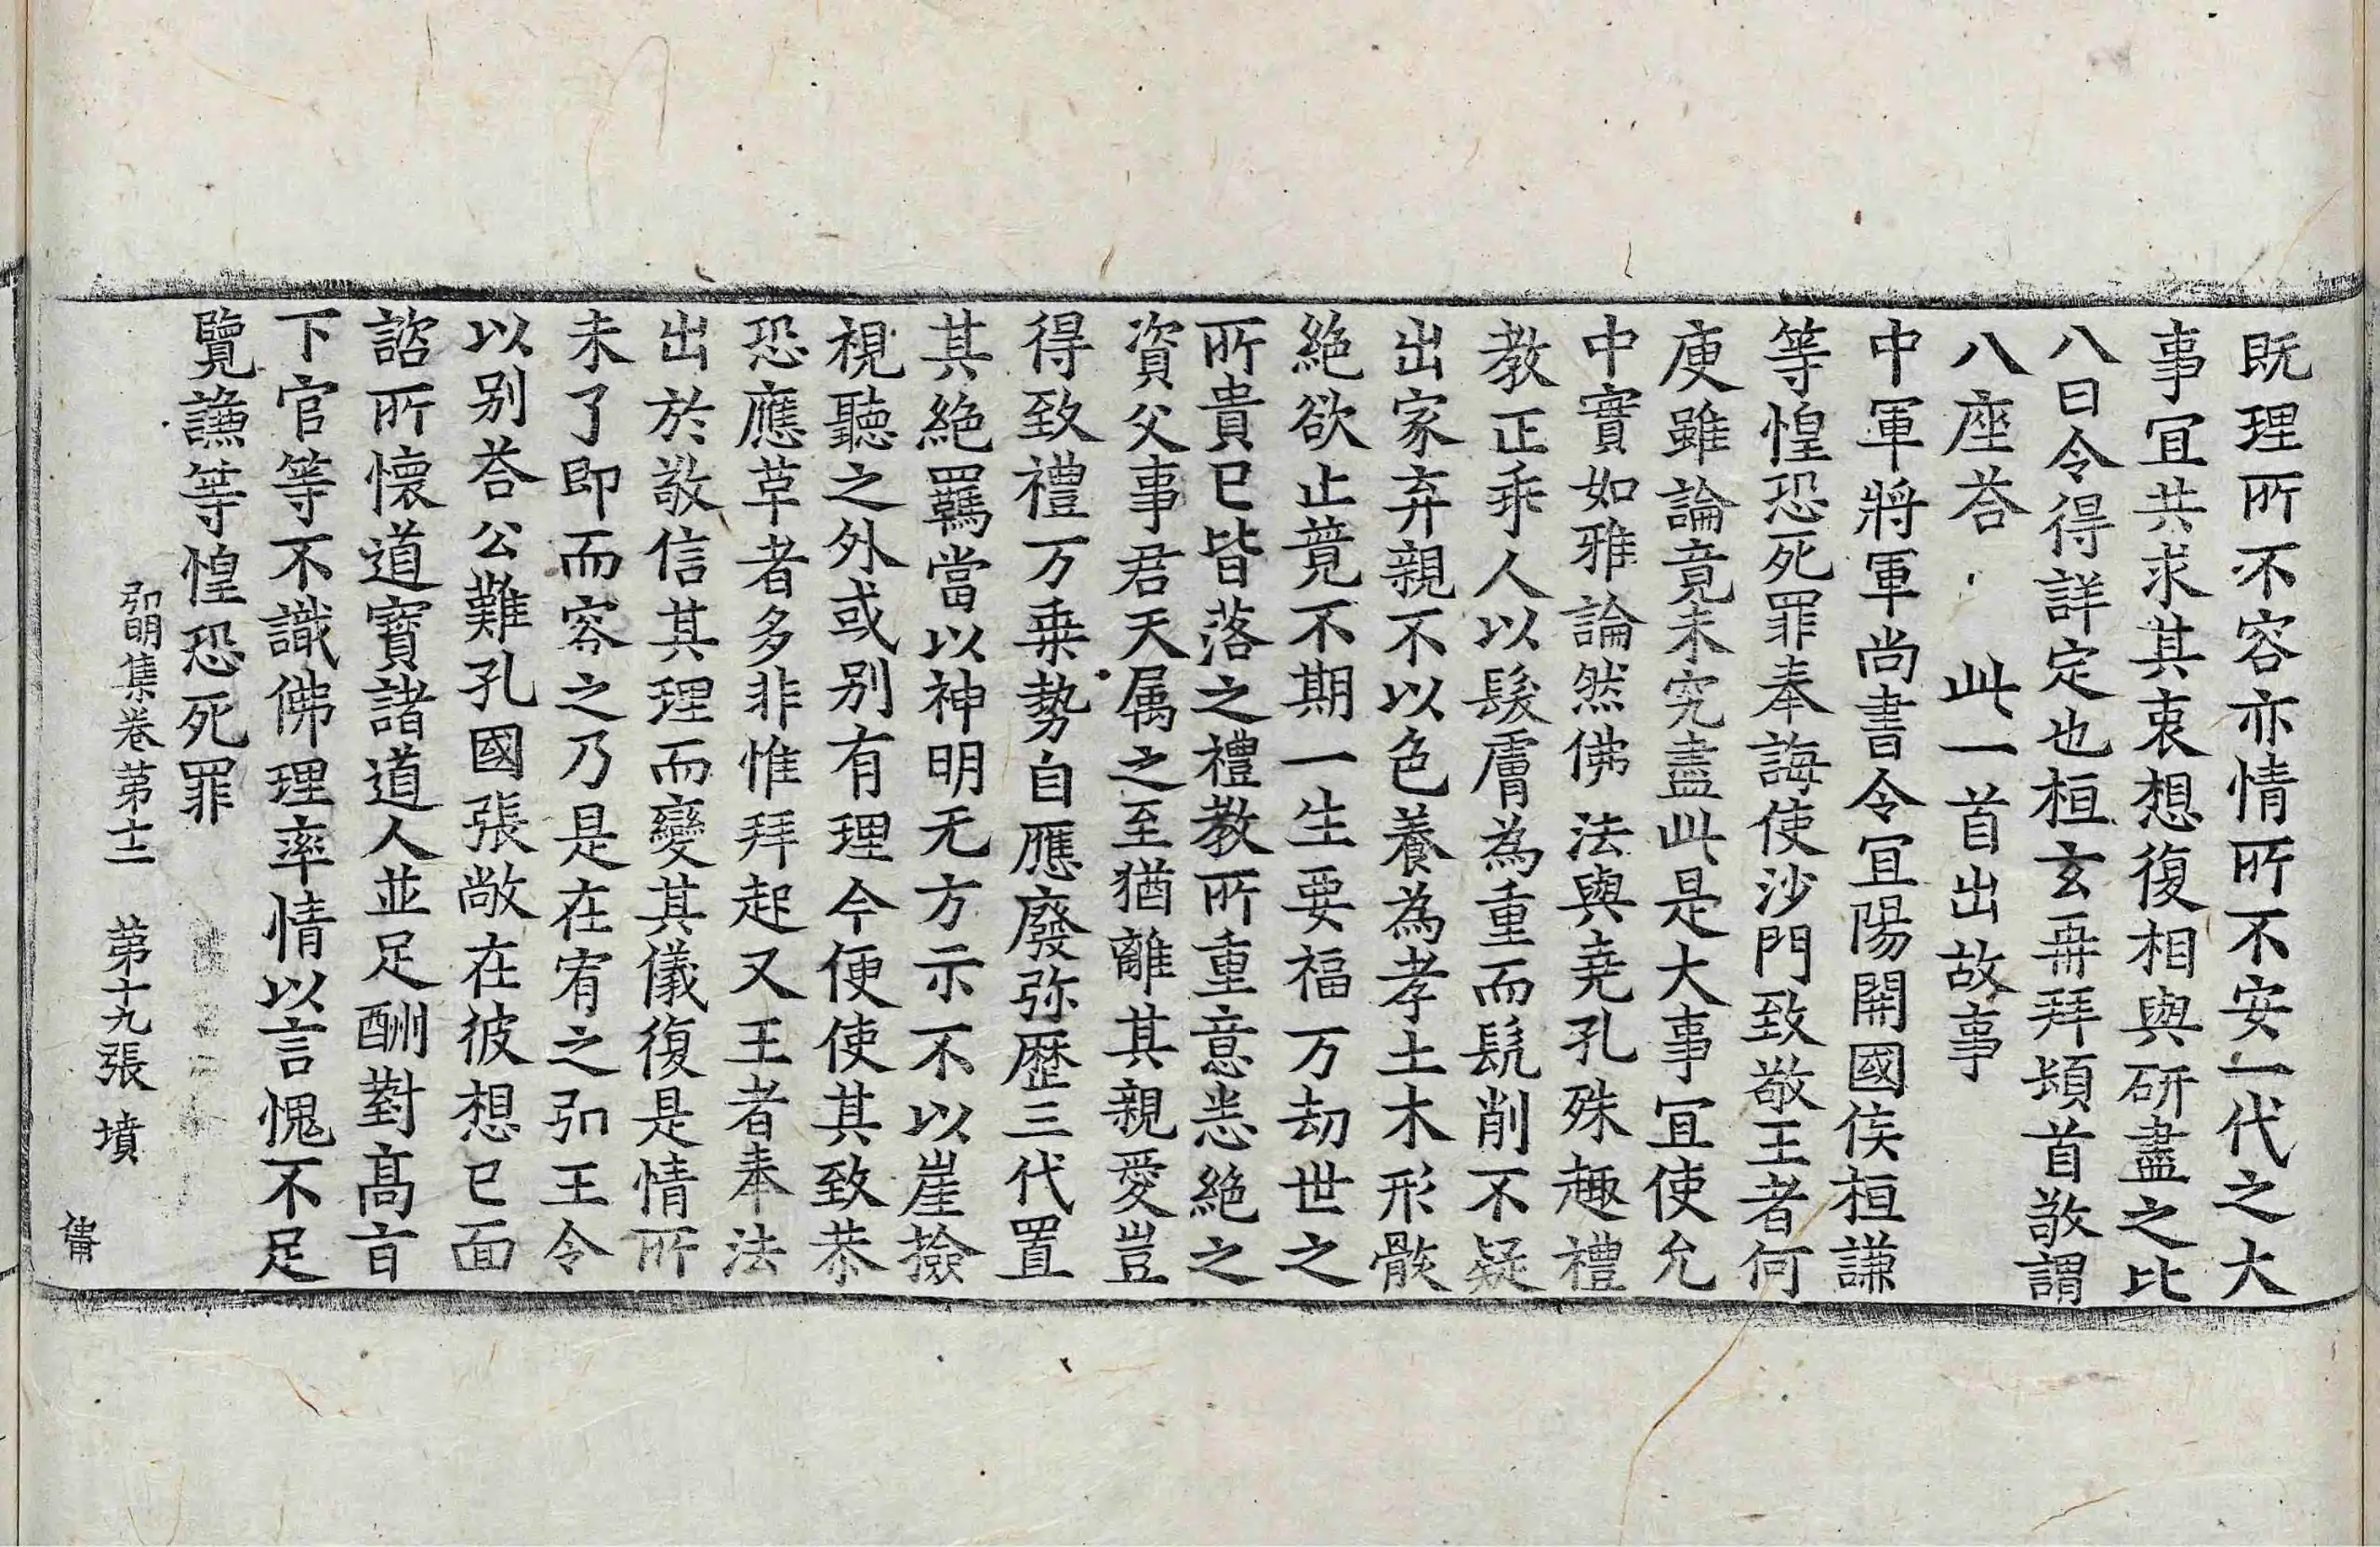 既理所不容亦情所不安一代之大
事冝共求其衷想復相與研盡之比
八日令得詳定也桓玄再拜頓首敬謂
八座荅 此一首出故事
中軍將軍尚書令冝陽開國侯桓謙
等惶恐死罪奉誨使沙門致敬王者何
庾雖論竟未究盡此是大事冝使允
中實如雅論然佛法與堯孔殊趣禮
教正乖人以髮膚為重而髡削不疑
出家弃親不以色養為孝土木形骸
絶欲止競不期一生要福万劫世之
所貴已皆落之禮教所重意悉絶之
資父事君天属之至猶離其親愛豈
得致禮万乗勢自應廢弥歷三代置
其絶羈當以神明无方示不以崖撿
視聽之外或别有理今便使其致恭
恐應革者多非惟拜起又王者奉法
出於敬信其理而變其儀復是情所
未了即而容之乃是在宥之弘王令
以别荅公難孔國張敞在彼想已面
諮所懷道寶諸道人並足酬對髙旨
下官等不識佛理率情以言愧不足
覽謙等惶恐死罪
弘明集卷苐十二 苐十九張 墳